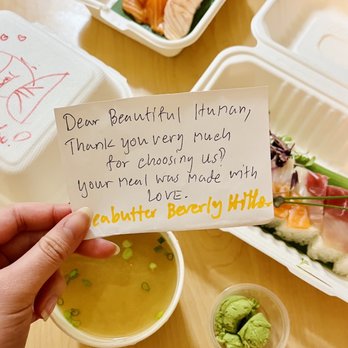 Dear Beautiful Human,
Thank you very much
for choosing us!
Your meal was made with
LOVE.
eabutter Beverly Hills